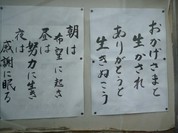 おかげさまと
生かされ
ありがとうと
生きぬこう
朝は
希望に起き
昼は
努力に生き
夜は
感謝に眠る